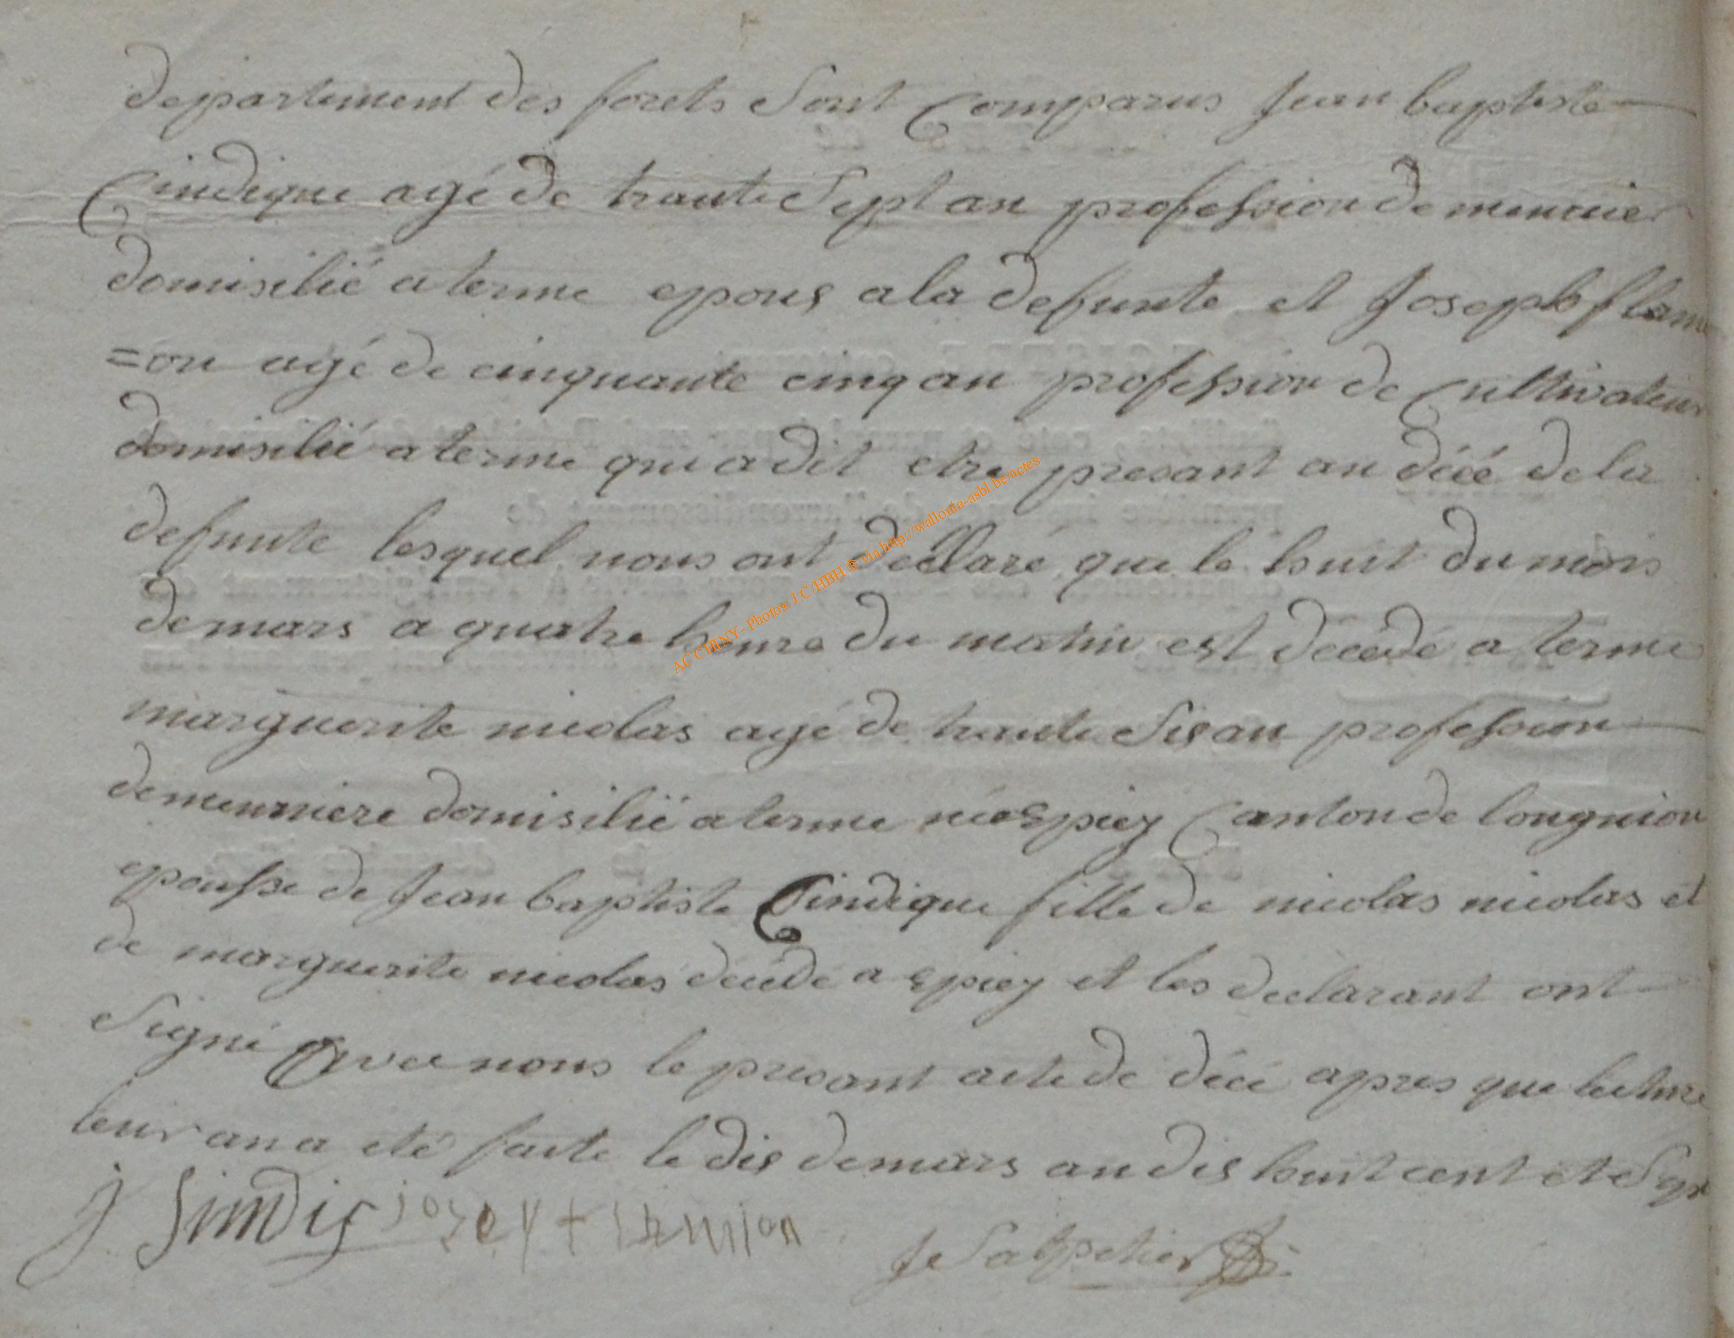 departement des forets Sont Comparus Jean baptiste
Cindique agé de trante Sept an profession de meunier
domisilié a terme epous a la defunte et Joseph flam
=on agé de cinquante cinq an profession de Cultivateur
domisilié a terme qui a dit etre presant au décé de la
defunte lesquel nous ont declaré que le huit du mois
de mars a quatre heure du matin est décédé a terme
marguerite nicolas agé de trante Sis an profession
de meuniere domisilié a terme né a Epiez Canton de longuion
epousse de Jean baptiste Cindique fille de nicolas nicolas et
de marguerite nicolas décédé a Epiez et les declarant ont
Signé Avec nous le presant acte de décé apres que lecture
leur an a eté faite le dis de mars an dis huit cent et Sept
J Sindic joseph
AC CHINY - Photos J.C.HBH © via http://wallonia-asbl.be/actes